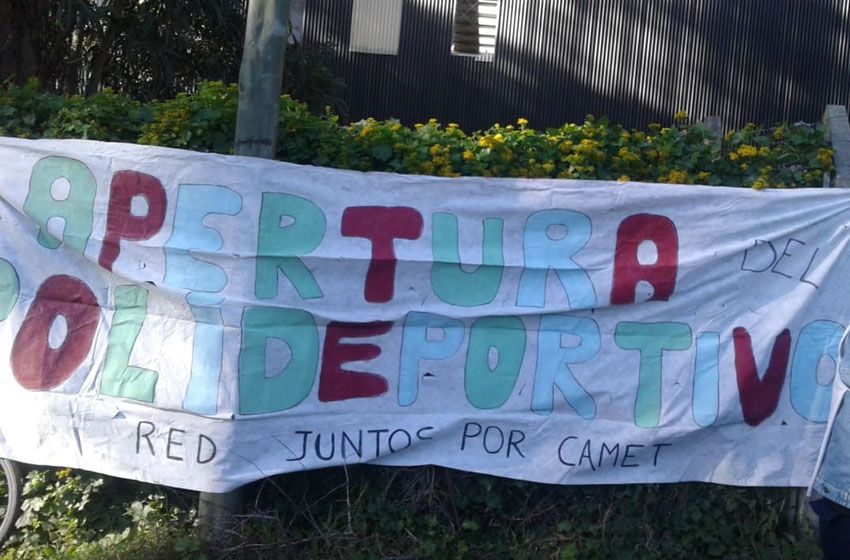 APERTURA DEL
POLIDEPORTIVO
RED JUNTOS POR CAMET